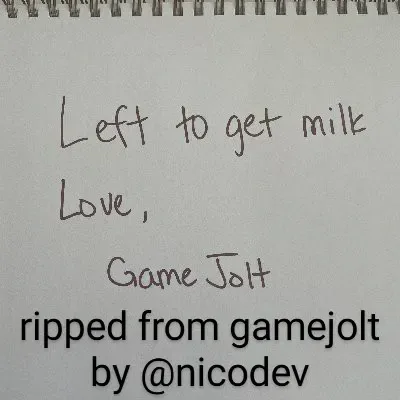 Left to get milk
Love,
Game Jolt
ripped from gamejolt
by @nicodev